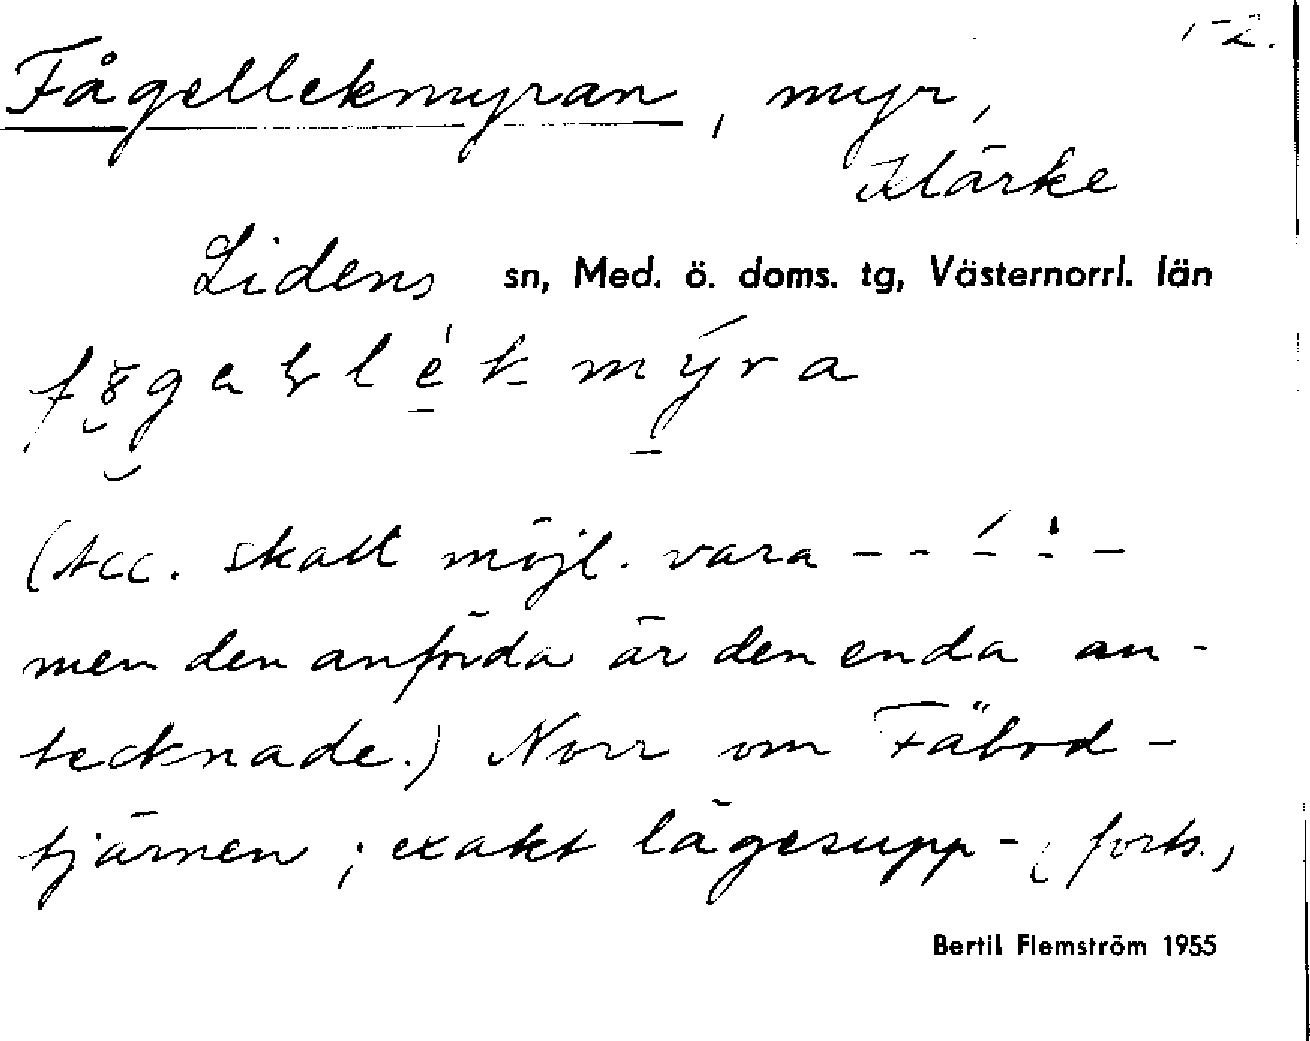 1-2.
Fågellekmyran, myr,
Klärke
Lidens sn, Med. ö. doms. tg, Västernorrl. län
(Acc. skall möjl. vara - - ́- -̍ -
men den anförda är den enda an-
tecknade.) Norr om Fäbod-
tjärnen; exakt lägesupp- (forts.)
Bertil Flemström 1955